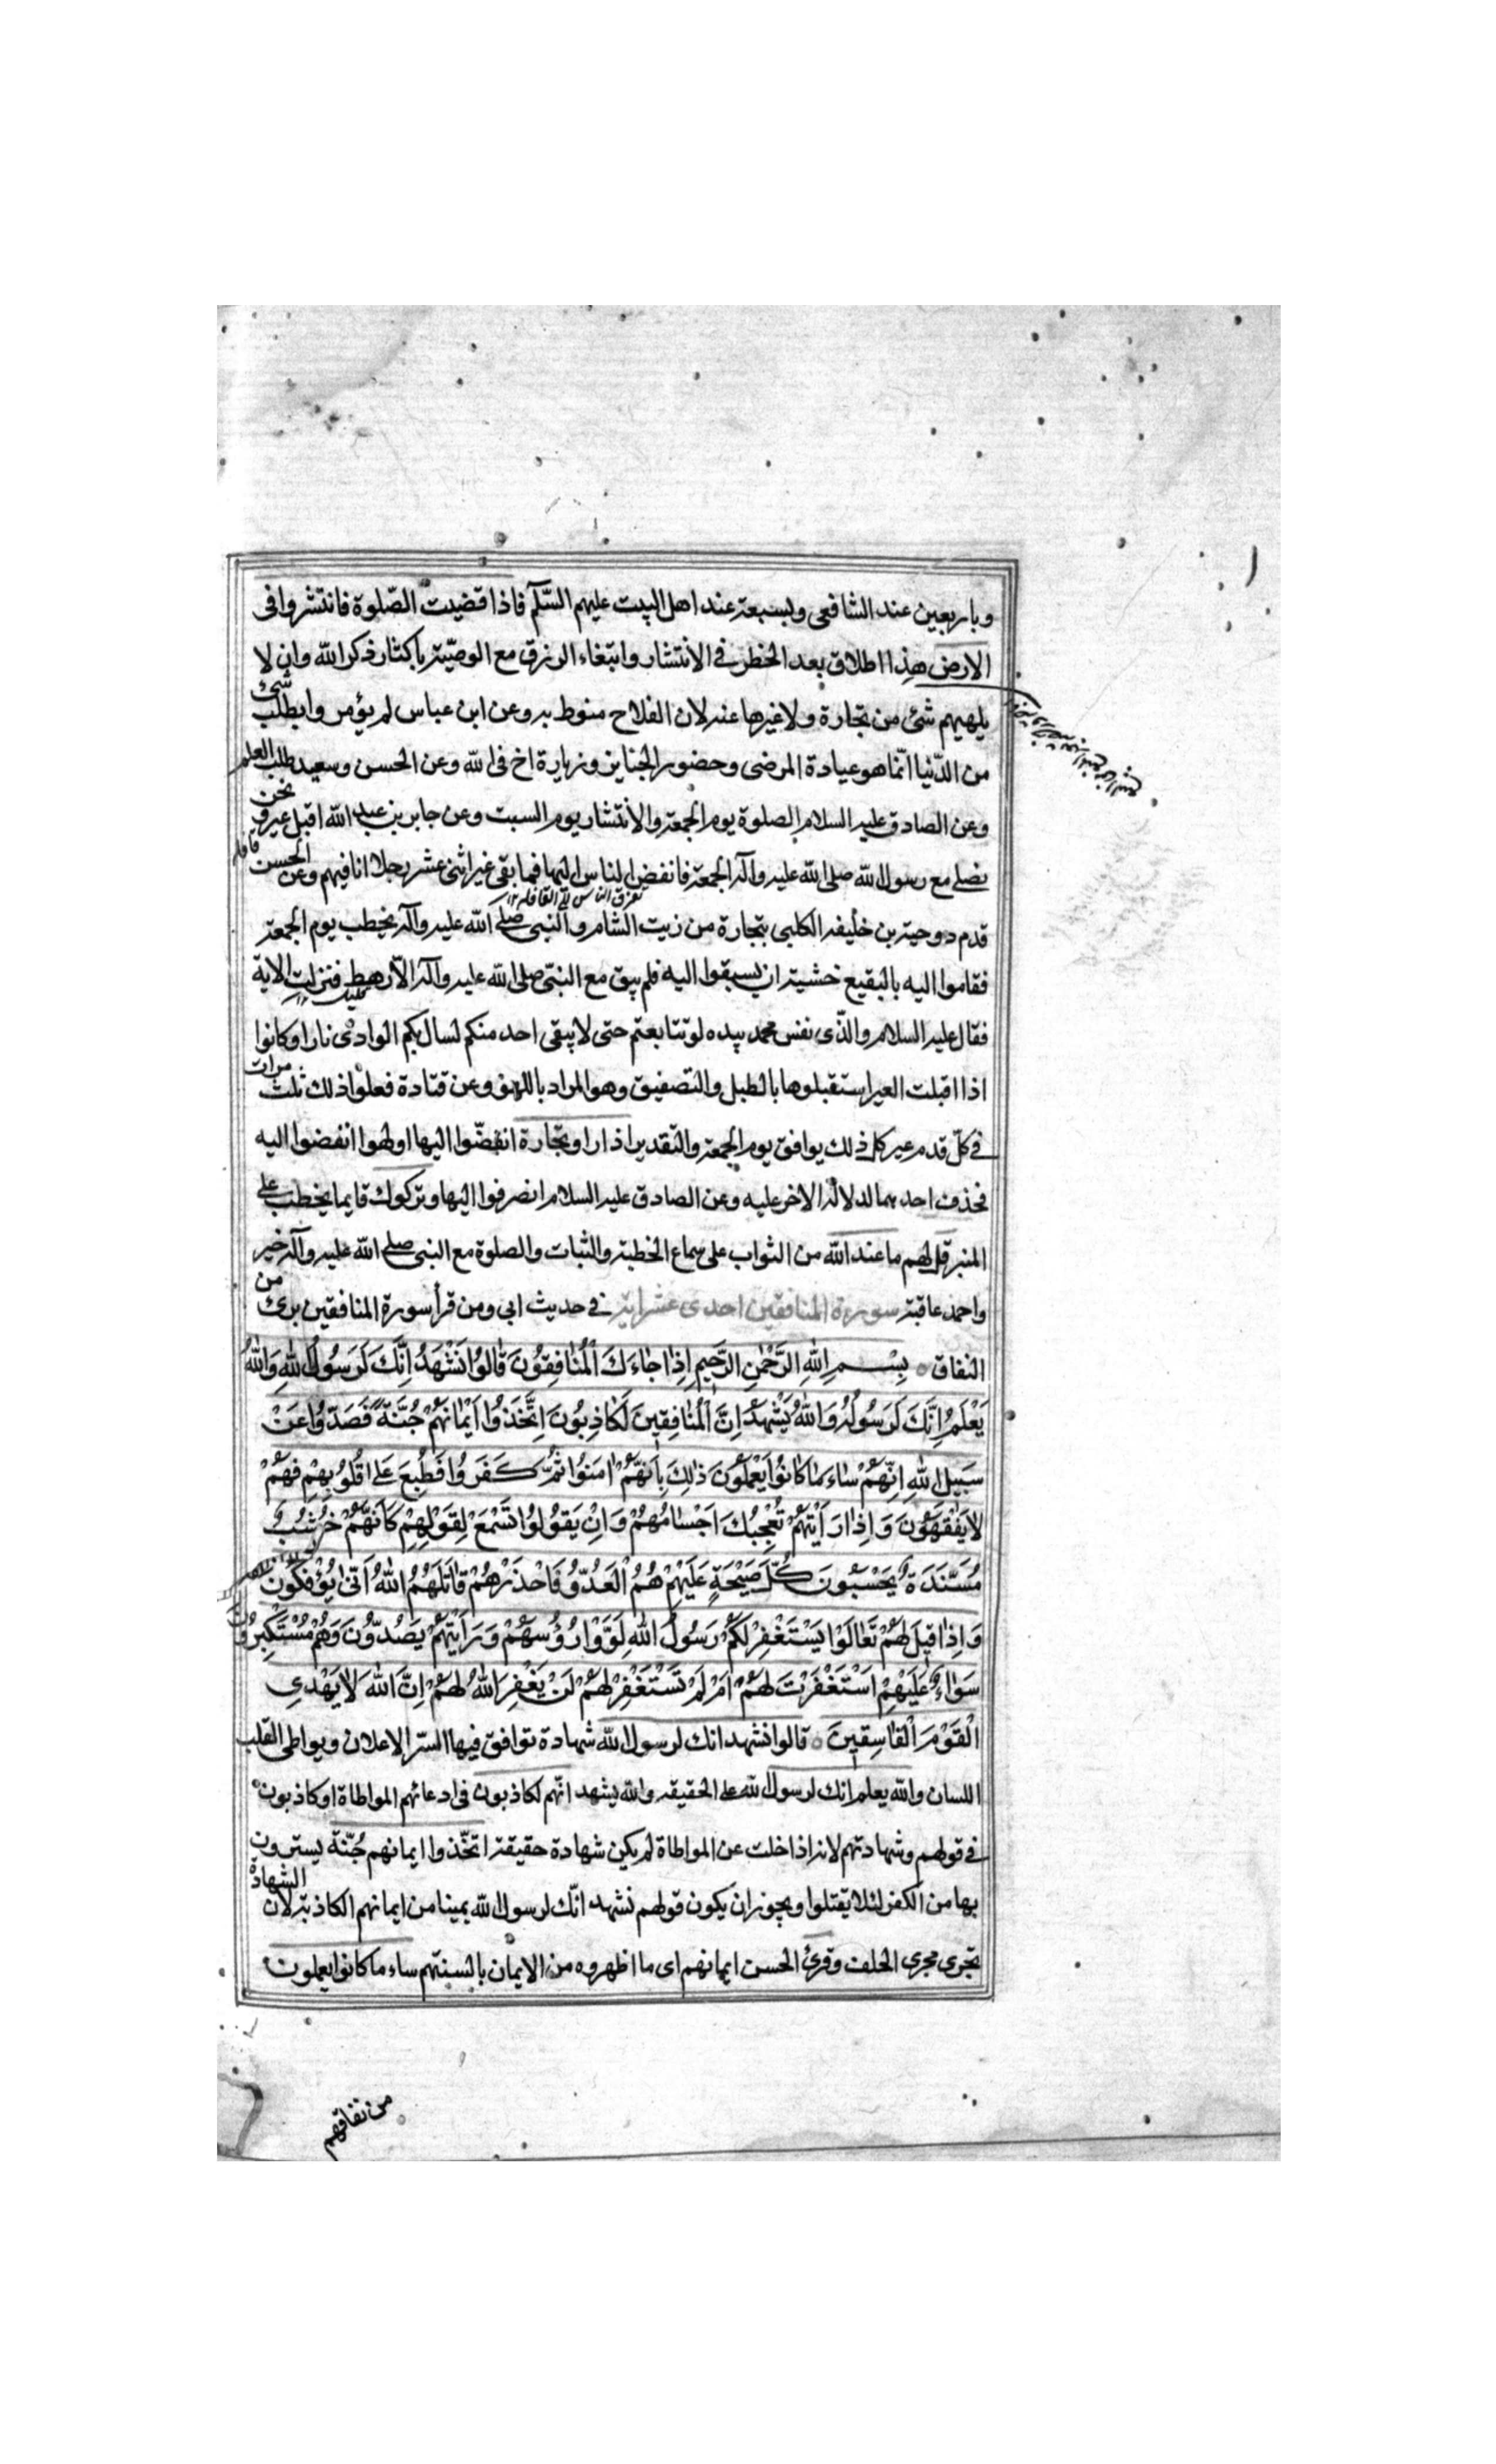 وباربعين عند الشافعى وبسبعة عند اهل البيت عليهم السّلم فاذا قضيت الصّلوة فانتشروا فى
الارض هذا اطلاق بعد الحظر فى الانتشار وابتغاء الرزق مع الوصيّة باكثار ذكر الله وان لا
يلهيهم شئ من تجارة ولا غيرها عنه لان الفلاح منوط به وعن ابن عباس لم يؤمروا بطلب شئ
من الدّنيا انّما هو عيادة المرضى وحضور الجنايز وزيارة اخ فى الله وعن الحسن وسعيد طلب العلم
وعن الصادق عليه السلام الصلوة يوم الجمعة والانتشار يوم السبت وعن جابر بن عبد الله اقبل عير ونحن
قافله
نصلى مع رسول الله صلى الله عليه وآله الجمعة فانفض الناس اليها فما بقى غير اثنى عشر رجلا انا فيهم وعن الحسن
تفرق الناس الى القافله ١٢
قدم دوحية بن خليفه الكلبى بتجارة من زيت الشام والنبى صلى الله عليه وآله يخطب يوم الجمعة
فقاموا اليه بالبقيع خشية ان يسبقوا اليه فلم يبق مع النبّى صلى الله عليه وآله الاّ رهط فنزلت الاية
فقال عليه السلام والّذى نفس محمد بيده لو تتابعتم حتى لا يبقى احد منكم لسال بكم الوادى نارا وكانوا
اذا اقبلت العير استقبلوها بالطبل والتصفيق وهو المراد باللهو وعن قتادة فعلوا ذلك ثلث مرات
فى كلّ قدم عير كل ذلك يوافق يوم الجمعة والتقدير اذا راو تجارة انفضّوا اليها او لهوا انفضوا اليه
فحذف احدهما لدلالة الاخر عليه وعن الصادق عليه السلام انصرفوا اليها وتركوك قايما يخطب على
المنبر قل لهم ما عند الله من الثواب على سماع الخطبة والثبات والصلوة مع النبى صلى الله عليه وآله خير
واحمد عاقبة سورة المنافقين احدى عشر اية فى حديث ابى ومن قرأ سورة المنافقين برئ من
النفاق بِسْمِ اللهِ الرَّحْمٰنِ الرَّحِيمِ اِذَا جَاءَكَ الْمُنَافِقُونَ قَالُوا نَشْهَدُ اِنَّكَ لَرَسُولُ اللهِ وَاللهُ
يَعْلَمُ اِنَّكَ لَرَسُولُهُ وَاللهُ يَشْهَدُ اِنَّ الْمُنَافِقِينَ لَكَاذِبُونَ اِتَّخَذُوا اَيْمَانَهُمْ جُنَّةً فَصَدُّوا عَنْ
سَبِيلِ اللهِ اِنَّهُمْ سَاءَ مَا كَانُوا يَعْمَلُونَ ذٰلِكَ بِاَنَّهُمْ اٰمَنُوا ثُمَّ كَفَرُوا فَطُبِعَ عَلىٰ قُلُوبِهِمْ فَهُمْ
لَا يَفْقَهُونَ وَاِذَا رَاَيْتَهُمْ تُعْجِبُكَ اَجْسَامُهُمْ وَاِنْ يَقُولُوا تَسْمَعْ لِقَوْلِهِمْ كَاَنَّهُمْ خُشُبٌ
مُسَنَّدَةٌ يَحْسَبُونَ كُلَّ صَيْحَةٍ عَلَيْهِمْ هُمُ الْعَدُوُّ فَاحْذَرْهُمْ قَاتَلَهُمُ اللهُ اَنّىٰ يُؤْفَكُونَ
وَاِذَا قِيلَ لَهُمْ تَعَالَوْا يَسْتَغْفِرْ لَكُمْ رَسُولُ اللهِ لَوَّوْا رُؤُسَهُمْ وَرَاَيْتَهُمْ يَصُدُّونَ وَهُمْ مُسْتَكْبِرُونَ
سَوَاءٌ عَلَيْهِمْ اَسْتَغْفَرْتَ لَهُمْ اَمْ لَمْ تَسْتَغْفِرْ لَهُمْ لَنْ يَغْفِرَ اللهُ لَهُمْ اِنَّ اللهَ لَا يَهْدِى
الْقَوْمَ الْفَاسِقِينَ قالوا نشهد انك لرسول الله شهادة توافق فيها السّر الاعلان ويواطى القلب
اللسان والله يعلم انك لرسول الله على الحقيقه والله يشهد انّهم لكاذبون فى ادعائهم المواطاة او كاذبون
فى قولهم وشهادتهم لانه اذا خلت عن المواطاة لم يكن شهادة حقيقة اتخّذوا ايمانهم جُنّة يسترون
بها من الكفر لئلا يقتلوا ويجوز ان يكون قولهم نشهد انّك لرسول الله يمينا من ايمانهم الكاذبة لان الشهادة
تجرى مجرى الحلف وقرئ الحسن ايمانهم اى ما اظهروه من الايمان بالسنتهم ساء ما كانوا يعملون
من نفاقهم